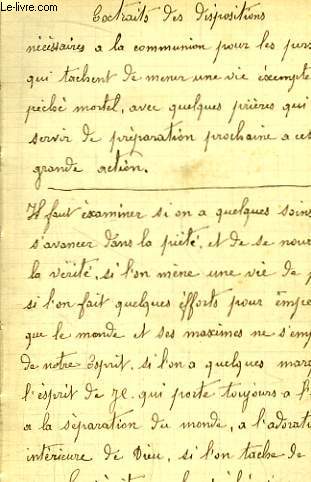 Le-Livre.com
Extraits des dispositions
nécéssaires a la communion pour les pers
qui tachent de mener une vie éxempte
péché mortel, avec quelques prières qui
servir de préparation prochaine a ces
grande action.
Il faut éxaminer si on a quelques soins
s'avancer dans la piété, et de se nour
la vérité, si l'on mène une vie de p
si l'on fait quelques éfforts pour empe
que le monde et ses maximes ne s'emp
de notre Esprit, si l'on a quelques marq
l'esprit de J.C. qui porte toujours a l'
a la séparation du monde, a l'adorati
intérieure de Dieu, si l'on tache de